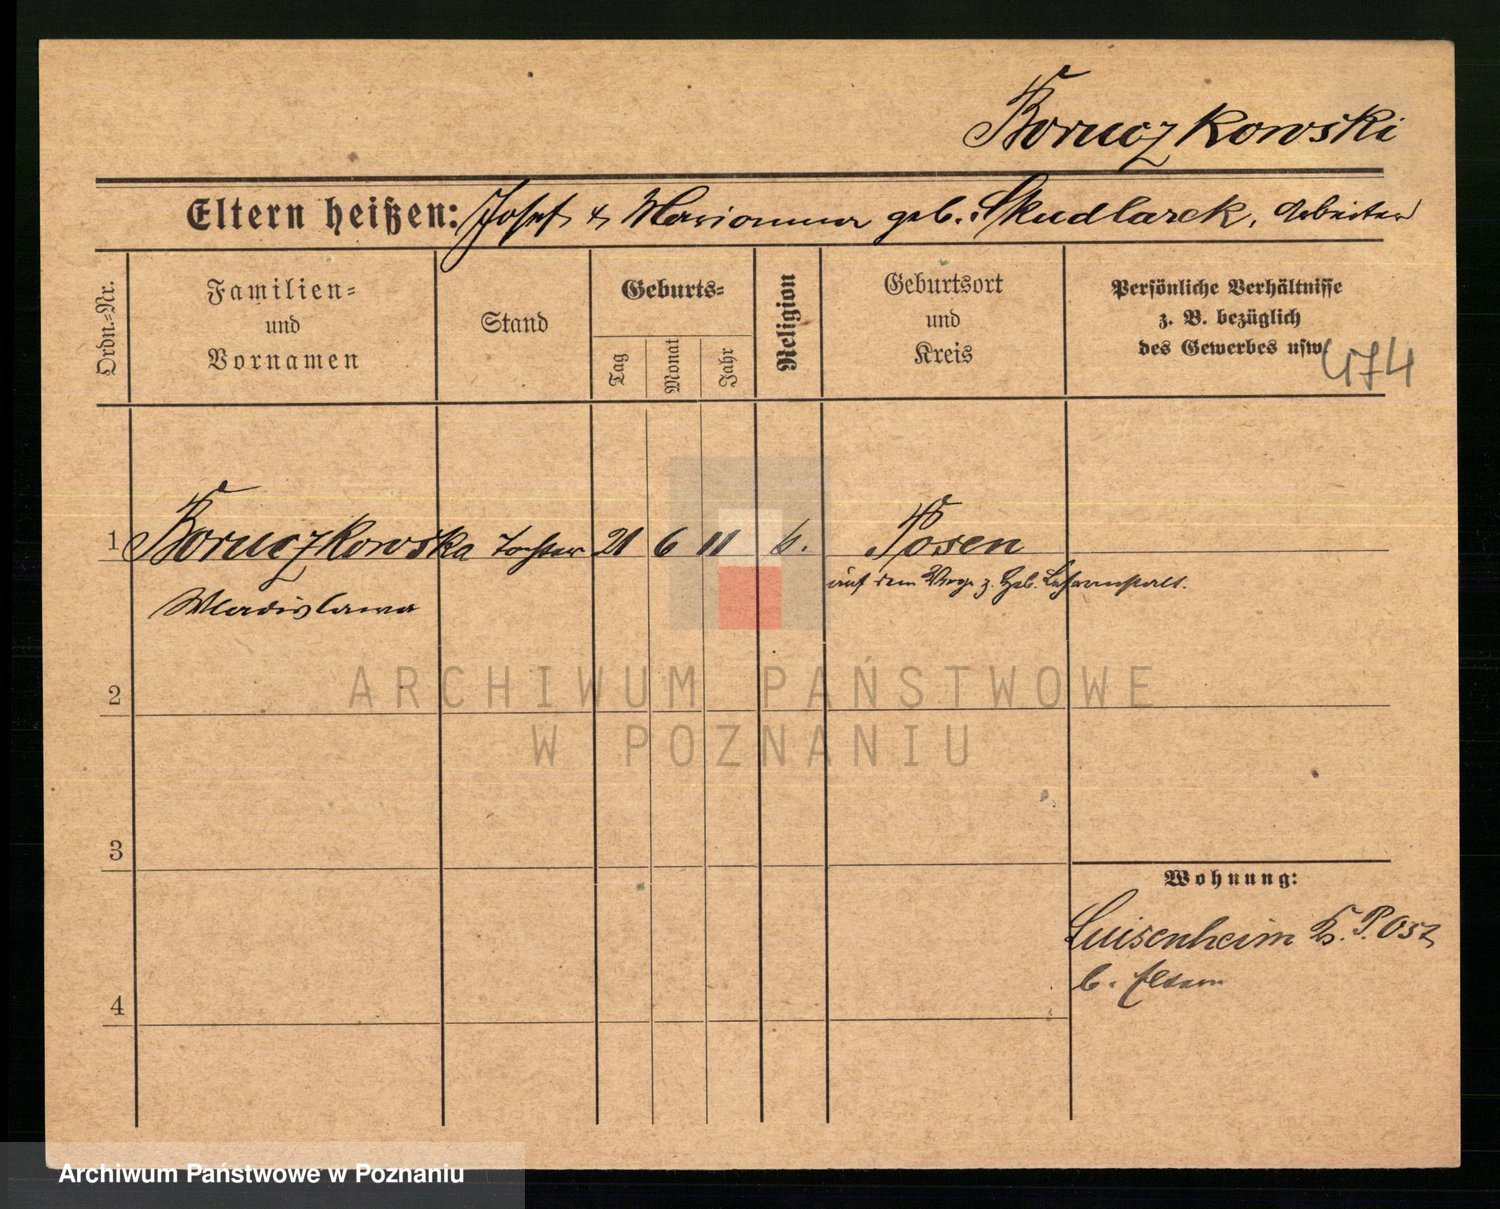 Boruczkowski
Eltern heißen: Josef & Marianna geb. Skudlarek, Arbeiter
Ordn.=Nr.
Familien=
und
Vornamen
Stand
Geburts=
Tag
Monat
Jahr
Religion
Geburtsort
und
Kreis
Persönliche Verhältnisse
z. B. bezüglich
des Gewerbes usw.
474
1 Boruczkowska Tochter 21 6 11 k. Posen
auf dem Wege z. Geb. Lehranstalt.
Wladislawa
2
3
4
Wohnung:
Luisenheim K. P. Ost
b. Eltern
ARCHIWUM PAŃSTWOWE
W POZNANIU
Archiwum Państwowe w Poznaniu